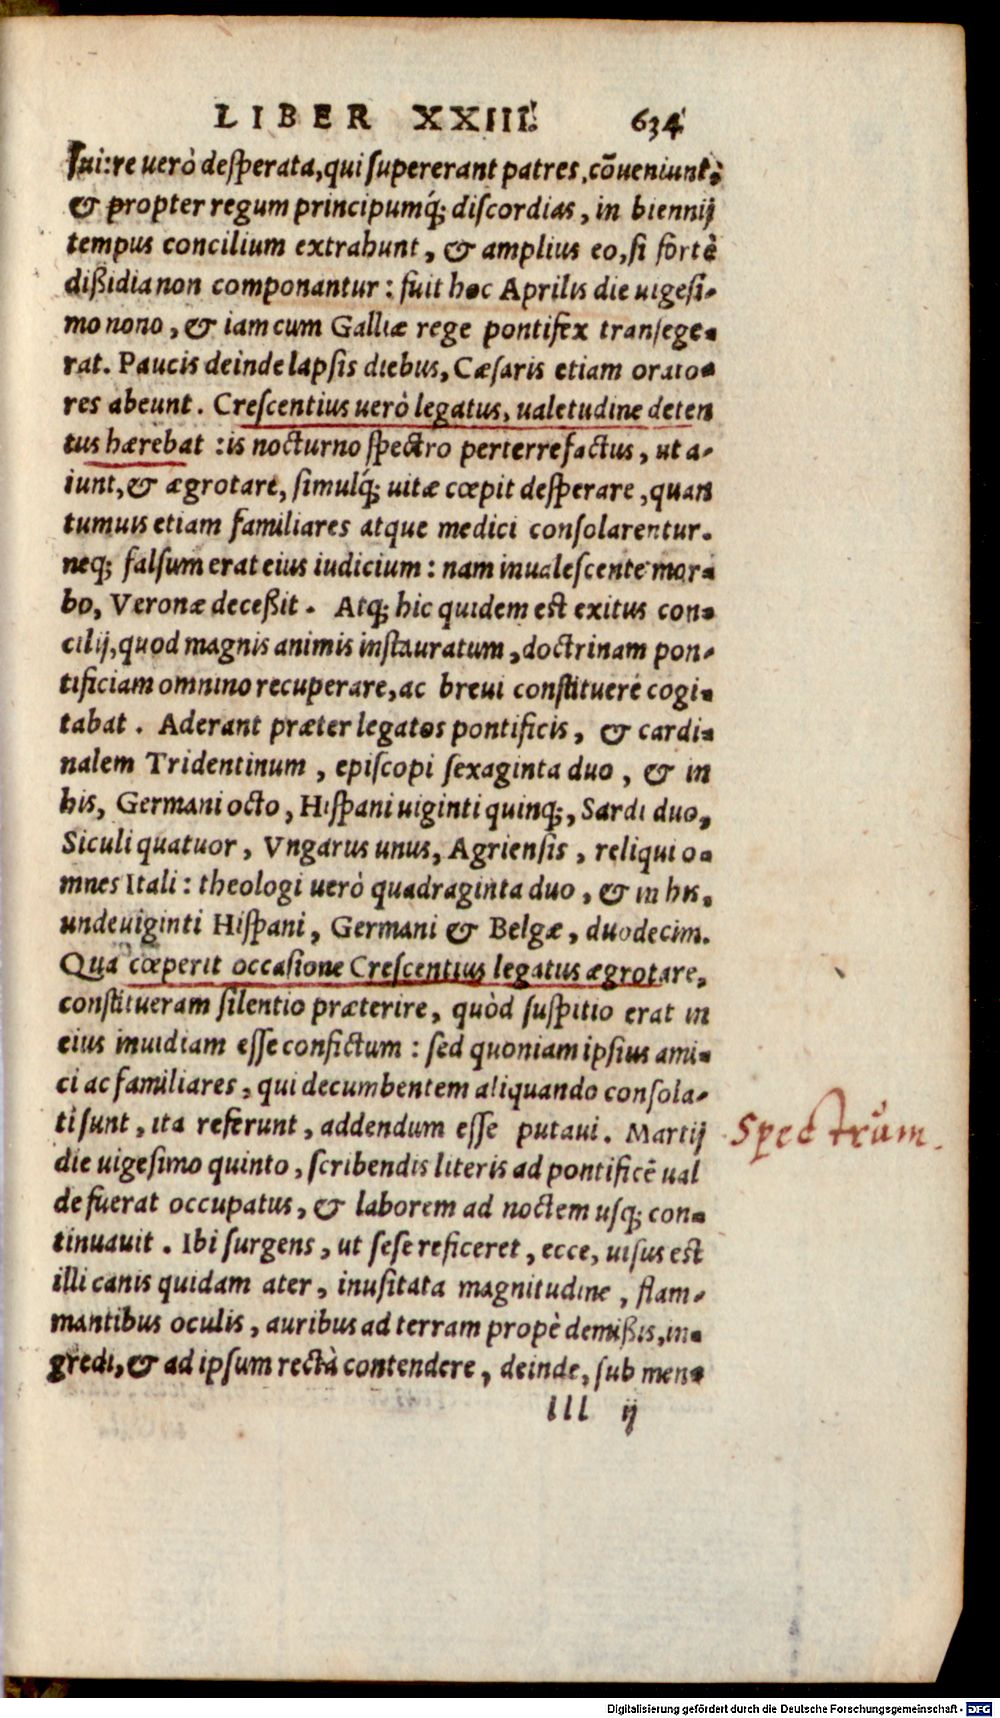 LIBER XXIII. 634
sui: re verò desperata, qui supererant patres, cõveniunt:
& propter regum principumq́; discordias, in biennij
tempus concilium extrahunt, & amplius eo, si fortè
dißidia non componantur: fuit hoc Aprilis die uigesi-
mo nono, & iam cum Galliæ rege pontifex transege-
rat. Paucis deinde lapsis diebus, Cæsaris etiam orato-
res abeunt. Crescentius uerò legatus, ualetudine deten
tus hærebat : is nocturno spectro perterrefactus, ut a-
iunt, & ægrotare, simulq́; uitæ cœpit desperare, quan
tumuis etiam familiares atque medici consolarentur.
neq; falsum erat eius iudicium : nam inualescente mor-
bo, Veronæ deceßit. Atq; hic quidem est exitus con-
cilij, quod magnis animis instauratum, doctrinam pon-
tificiam omnino recuperare, ac breui constituere cogi-
tabat. Aderant præter legatos pontificis, & cardi-
nalem Tridentinum, episcopi sexaginta duo, & in
his, Germani octo, Hispani uiginti quinq;, Sardi duo,
Siculi quatuor, Vngarus unus, Agriensis, reliqui o-
mnes Itali : theologi uerò quadraginta duo, & in his,
undeuiginti Hispani, Germani & Belgæ, duodecim.
Qua cœperit occasione Crescentius legatus ægrotare,
constitueram silentio præterire, quòd suspitio erat in
eius inuidiam esse confictum : sed quoniam ipsius ami-
ci ac familiares, qui decumbentem aliquando consola-
ti sunt, ita referunt, addendum esse putaui. Martij
Spectrum.
die uigesimo quinto, scribendis literis ad pontificẽ ual
de fuerat occupatus, & laborem ad noctem usq; con-
tinuauit. Ibi surgens, ut sese reficeret, ecce, uisus est
illi canis quidam ater, inusitata magnitudine, flam-
mantibus oculis, auribus ad terram propè demißis, in-
gredi, & ad ipsum rectà contendere, deinde, sub men-
lll ij
Digitalisierung gefördert durch die Deutsche Forschungsgemeinschaft - DFG